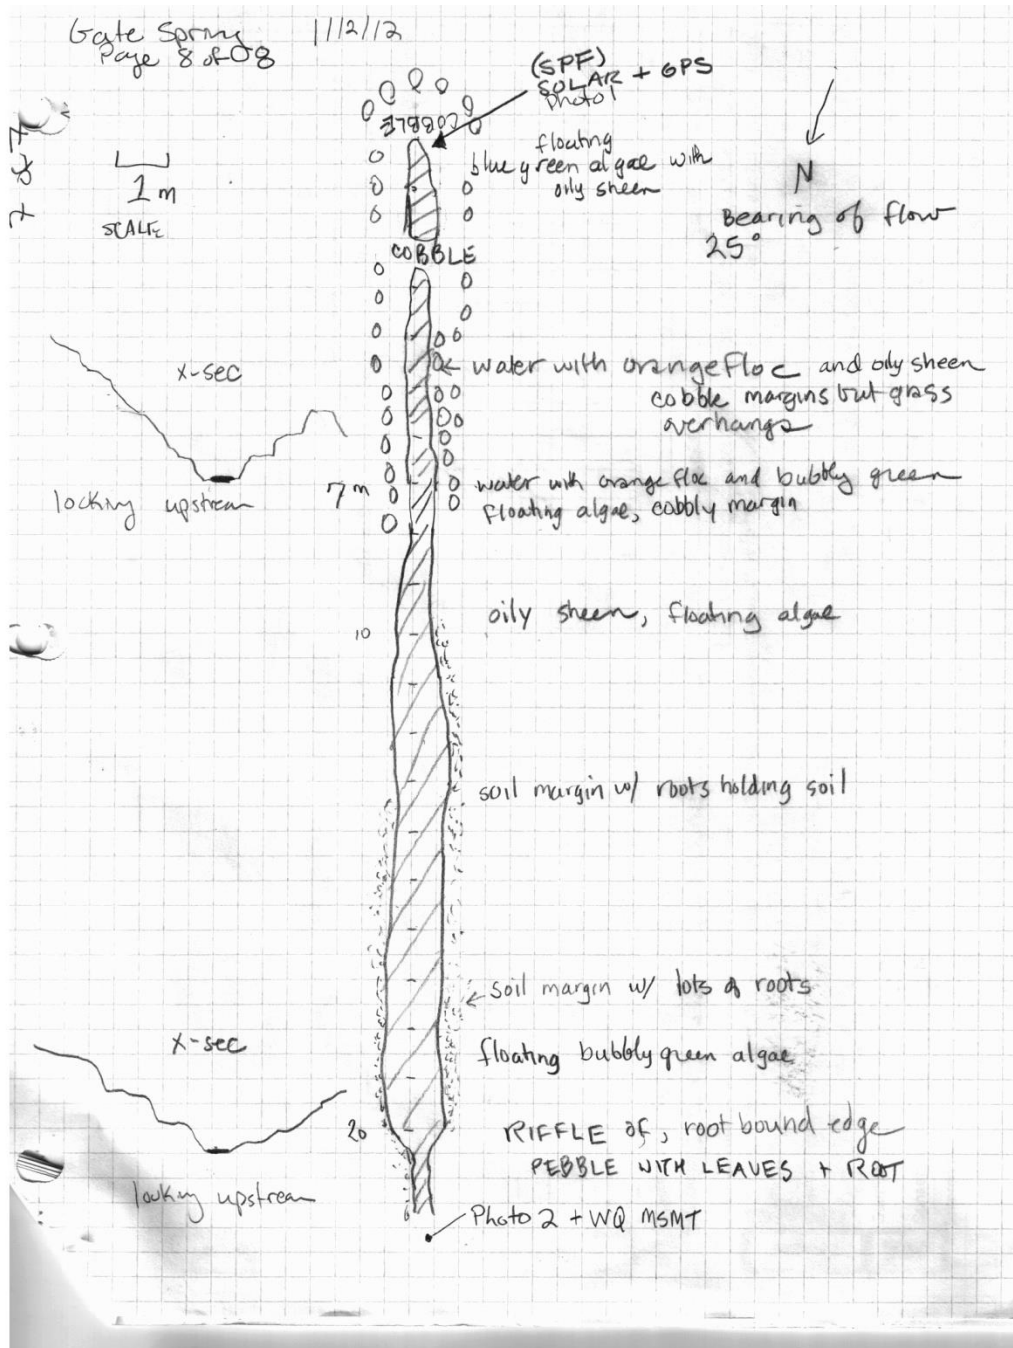 Gate Spring 11/2/12
Page 8 of 08
(SPF)
SOLAR + GPS
Photo 1
COBBLE
floating
blue green algae with
oily sheen
1 m
SCALE
N
Bearing of flow
25°
COBBLE
x-sec
water with orange floc and oily sheen
cobble margins but grass
overhangs
looking upstream
7 m
water with orange floc and bubbly green
floating algae, cobbly margin
10
oily sheen, floating algae
soil margin w/ roots holding soil
soil margin w/ lots of roots
x-sec
floating bubbly green algae
20
RIFFLE OF, root bound edge
PEBBLE WITH LEAVES + ROOT
looking upstream
Photo 2 + WQ MSMT